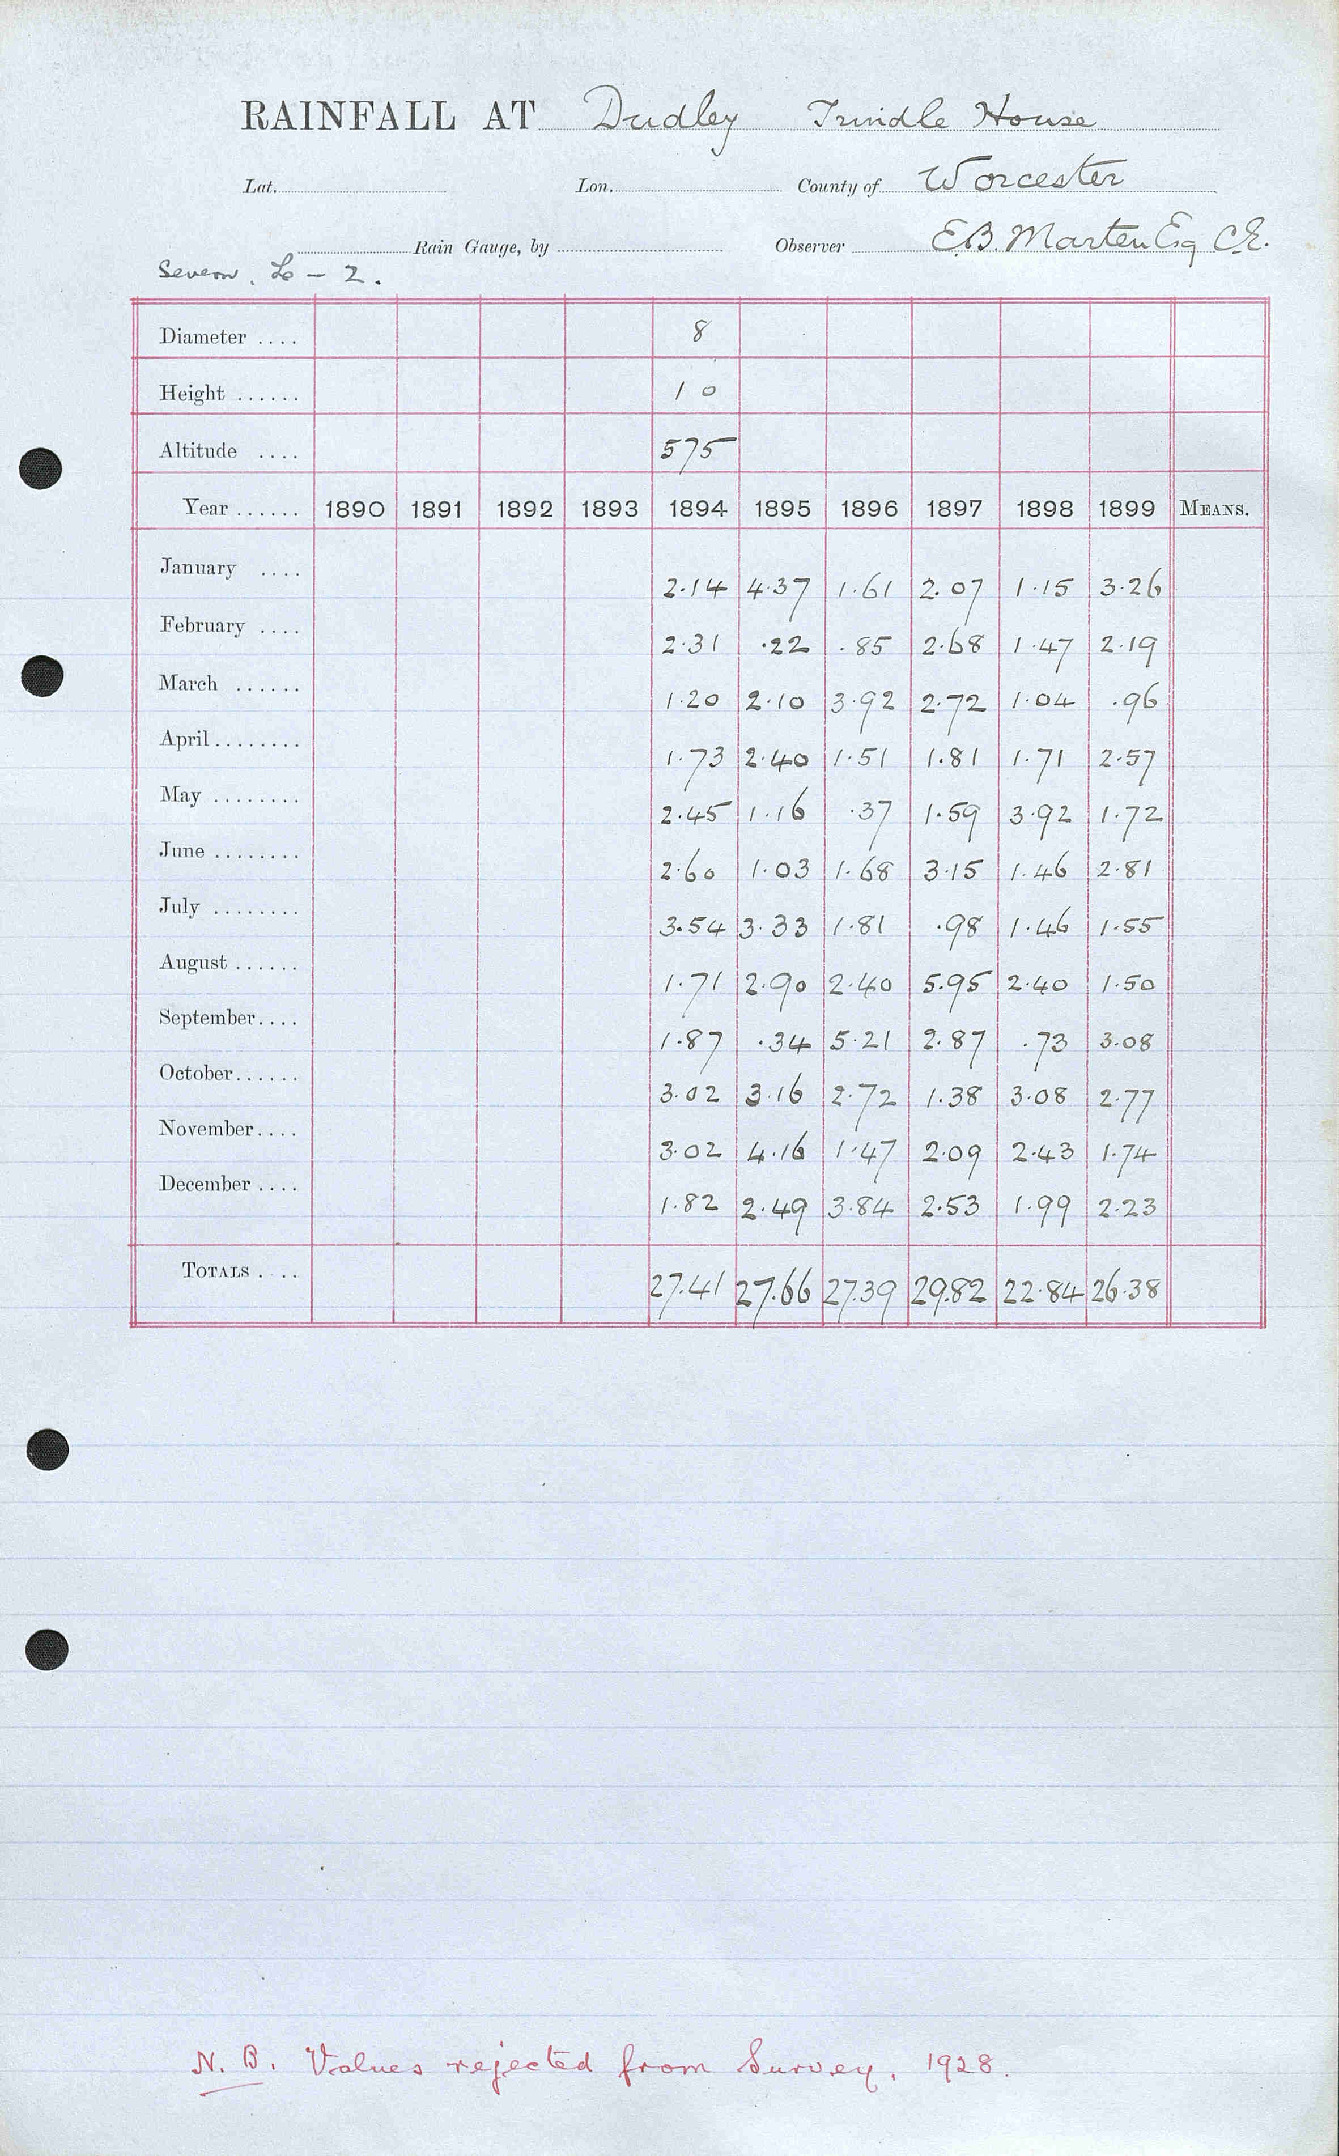 RAINFALL AT Dudley Trindle House
Lat. Lon. County of Worcester
Rain Gauge, by Observer E.B. Marten Esq C.E.
Severn. L - 2.
Diameter .... 8
Height ...... 1 0
Altitude .... 575
Year ...... 1890 1891 1892 1893 1894 1895 1896 1897 1898 1899 MEANS.
January .... 2.14 4.37 1.61 2.07 1.15 3.26
February .... 2.31 .22 .85 2.68 1.47 2.19
March ...... 1.20 2.10 3.92 2.72 1.04 .96
April........ 1.73 2.40 1.51 1.81 1.71 2.57
May ........ 2.45 1.16 .37 1.59 3.92 1.72
June ........ 2.60 1.03 1.68 3.15 1.46 2.81
July ........ 3.54 3.33 1.81 .98 1.46 1.55
August ...... 1.71 2.90 2.40 5.95 2.40 1.50
September.... 1.87 .34 5.21 2.87 .73 3.08
October...... 3.02 3.16 2.72 1.38 3.08 2.77
November.... 3.02 4.16 1.47 2.09 2.43 1.74
December .... 1.82 2.49 3.84 2.53 1.99 2.23
TOTALS .... 27.41 27.66 27.39 29.82 22.84 26.38
N.B. Values rejected from Survey, 1928.